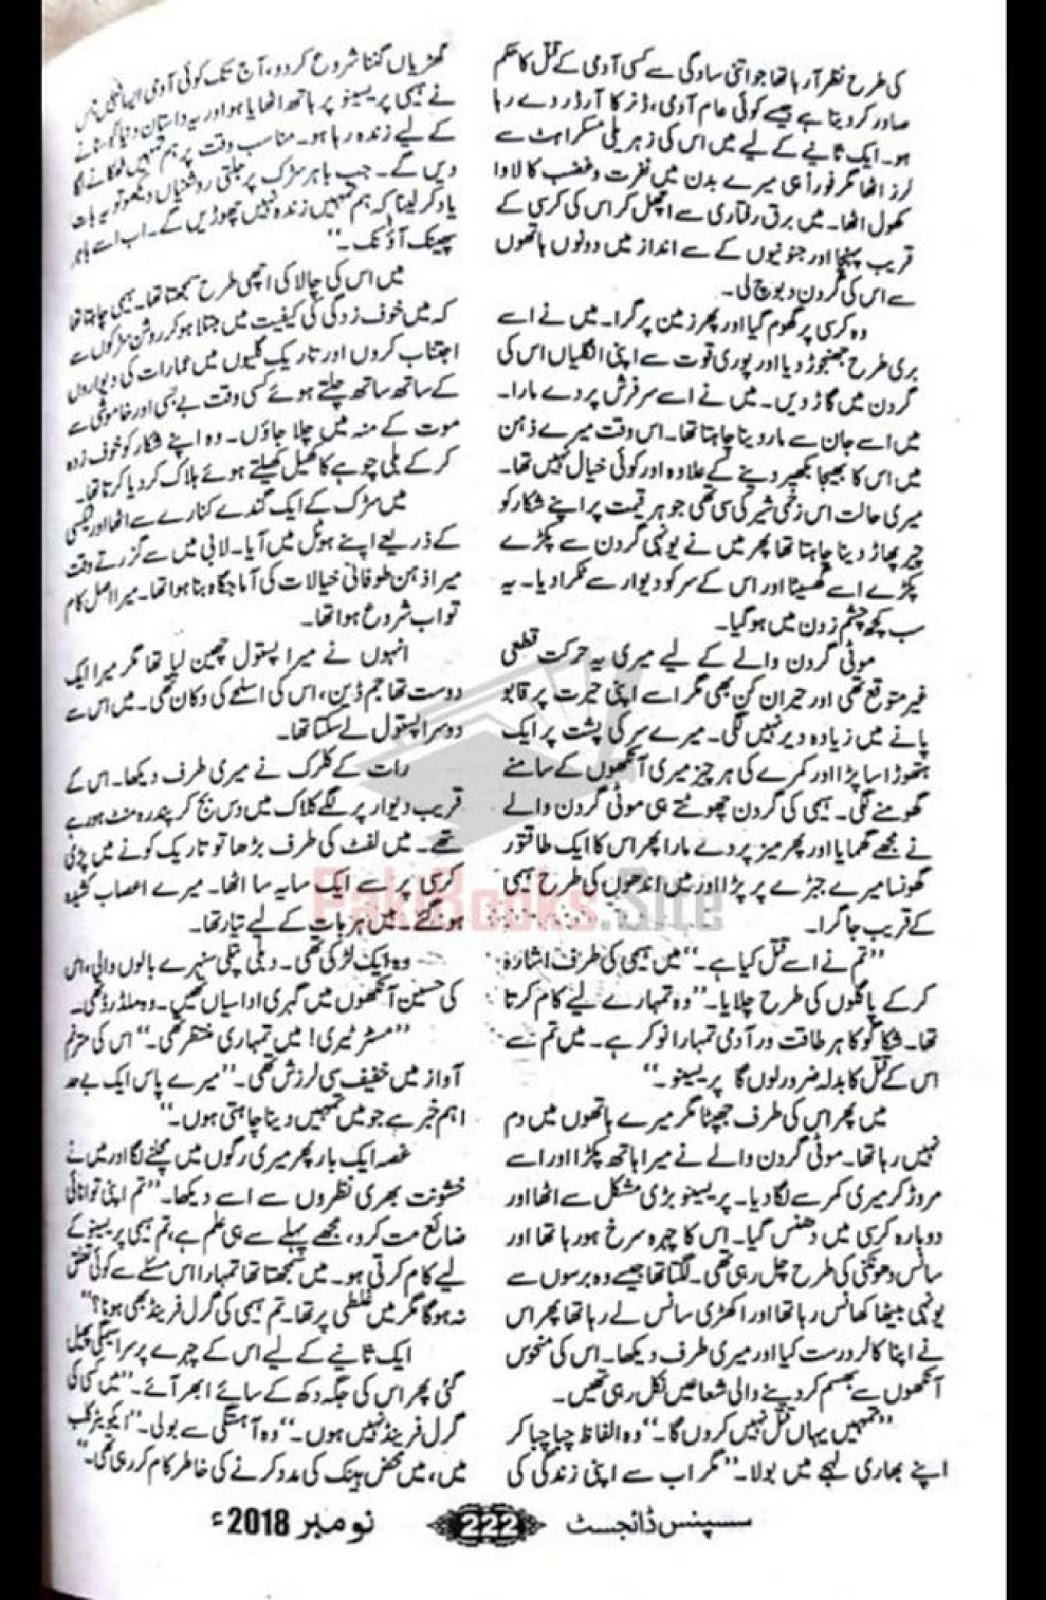 کی طرح نظر آرہا تھا جو اتنی سادگی سے کسی آدمی کے قتل کا حکم
صادر کر دیتا ہے جیسے کوئی عام آدمی، ڈنر کا آرڈر دے رہا
ہو۔ ایک ثانیے کے لیے میں اس کی زہریلی مسکراہٹ سے
لرز اٹھا مگر فوراً ہی میرے بدن میں نفرت و غضب کا لاوا
کھول اٹھا۔ میں برق رفتاری سے اچھل کر اس کی کرسی کے
قریب پہنچا اور جنونیوں کے سے انداز میں دونوں ہاتھوں
سے اس کی گردن دبوچ لی۔
وہ کرسی پر گھوم گیا اور پھر زمین پر گرا۔ میں نے اسے
بری طرح جھنجوڑ دیا اور پوری قوت سے اپنی انگلیاں اس کی
گردن میں گاڑ دیں۔ میں نے اسے سر فرش پر دے مارا۔
میں اسے جان سے مار دینا چاہتا تھا۔ اس وقت میرے ذہن
میں اس کا بھیجا بکھیر دینے کے علاوہ اور کوئی خیال نہیں تھا۔
میری حالت اس زخمی شیر کی سی تھی جو ہر قیمت پر اپنے شکار کو
چیر پھاڑ دینا چاہتا تھا پھر میں نے یونہی گردن سے پکڑے
پکڑے اسے گھسیٹا اور اس کے سر کو دیوار سے ٹکرا دیا۔ یہ
سب کچھ چشم زدن میں ہو گیا۔
موٹی گردن والے کے لیے میری یہ حرکت قطعی
غیر متوقع تھی اور حیران کن بھی مگر اسے اپنی حیرت پر قابو
پانے میں زیادہ دیر نہیں لگی۔ میرے سر کی پشت پر ایک
ہتھوڑا سا پڑا اور کمرے کی ہر چیز میری آنکھوں کے سامنے
گھومنے لگی۔ ہیمی کی گردن چھوٹتے ہی موٹی گردن والے
نے مجھے گھمایا اور پھر میز پر دے مارا پھر اس کا ایک طاقتور
گھونسا میرے جبڑے پر پڑا اور میں اندھوں کی طرح ہیمی
کے قریب جا گرا۔
”تم نے اسے قتل کیا ہے۔“ میں ہیمی کی طرف اشارہ
کر کے پاگلوں کی طرح چلایا۔ ”وہ تمہارے لیے کام کرتا
تھا۔ شکاگو کا ہر طاقت ور آدمی تمہارا نوکر ہے۔ میں تم سے
اس کے قتل کا بدلہ ضرور لوں گا پریسینو۔“
میں پھر اس کی طرف جھپٹا مگر میرے ہاتھوں میں دم
نہیں رہا تھا۔ موٹی گردن والے نے میرا ہاتھ پکڑا اور اسے
مروڑ کر میری کمر سے لگا دیا۔ پریسینو بڑی مشکل سے اٹھا اور
دوبارہ کرسی میں دھنس گیا۔ اس کا چہرہ سرخ ہو رہا تھا اور
سانس دھونکنی کی طرح چل رہی تھی۔ لگتا تھا جیسے وہ برسوں سے
یونہی بیٹھا کھانس رہا تھا اور اکھڑی سانس لے رہا تھا پھر اس
نے اپنا کالر درست کیا اور میری طرف دیکھا۔ اس کی منحوس
آنکھوں سے بھسم کر دینے والی شعاعیں نکل رہی تھیں۔
”تمہیں یہاں قتل نہیں کروں گا۔“ وہ الفاظ چبا چبا کر
اپنے بھاری لہجے میں بولا۔ ”مگر اب سے اپنی زندگی کی
گھڑیاں گننا شروع کر دو، آج تک کوئی آدمی ایسا نہیں جس
نے ہیمی پریسینو پر ہاتھ اٹھایا ہو اور یہ داستان دنیا کو سنانے
کے لیے زندہ رہا ہو۔ مناسب وقت پر ہم تمہیں ٹھکانے لگا
دیں گے۔ جب باہر سڑک پر جلتی روشنیاں دیکھو تو یہ بات
یاد کر لینا کہ ہم تمہیں زندہ نہیں چھوڑیں گے۔ اب اسے باہر
پھینک آؤ نک۔“
میں اس کی چالاکی اچھی طرح سمجھتا تھا۔ ہیمی چاہتا تھا
کہ میں خوف زدگی کی کیفیت میں مبتلا ہو کر روشن سڑکوں سے
اجتناب کروں اور تاریک گلیوں میں عمارات کی دیواروں
کے ساتھ ساتھ چلتے ہوئے کسی وقت بے بسی اور خاموشی سے
موت کے منہ میں چلا جاؤں۔ وہ اپنے شکار کو خوف زدہ
کر کے بلی چوہے کا کھیل کھیلتے ہوئے ہلاک کر دیا کرتا تھا۔
میں سڑک کے ایک گندے کنارے سے اٹھا اور ٹیکسی
کے ذریعے اپنے ہوٹل میں آیا۔ لابی میں سے گزرتے وقت
میرا ذہن طوفانی خیالات کی آماجگاہ بنا ہوا تھا۔ میرا اصل کام
تو اب شروع ہوا تھا۔
انہوں نے میرا پستول چھین لیا تھا مگر میرا ایک
دوست تھا جم ڈین، اس کی اسلحے کی دکان تھی۔ میں اس سے
دوسرا پستول لے سکتا تھا۔
رات کے کلرک نے میری طرف دیکھا۔ اس کے
قریب دیوار پر لگے کلاک میں دس بج کر پندرہ منٹ ہو رہے
تھے۔ میں لفٹ کی طرف بڑھا تو تاریک کونے میں پڑی
کرسی پر سے ایک سایہ سا اٹھا۔ میرے اعصاب کشیدہ
ہو گئے۔ میں ہر بات کے لیے تیار تھا۔
وہ ایک لڑکی تھی۔ دبلی پتلی سنہرے بالوں والی، اس
کی حسین آنکھوں میں گہری اداسیاں تھیں۔ وہ ملڈرڈ تھی۔
”مسٹر ٹیری! میں تمہاری منتظر تھی۔“ اس کی مترنم
آواز میں خفیف سی لرزش تھی۔ ”میرے پاس ایک بے حد
اہم خبر ہے جو میں تمہیں دینا چاہتی ہوں۔“
غصہ ایک بار پھر میری رگوں میں مچلنے لگا اور میں نے
خشونت بھری نظروں سے اسے دیکھا۔ ”تم اپنی توانائی
ضائع مت کرو، مجھے پہلے سے ہی علم ہے، تم ہیمی پریسینو کے
لیے کام کرتی ہو۔ میں سمجھتا تھا تمہارا اس مسئلے سے کوئی تعلق
نہ ہوگا مگر میں غلطی پر تھا۔ تم ہیمی کی گرل فرینڈ بھی ہونا؟“
ایک ثانیے کے لیے اس کے چہرے پر سراسیمگی پھیل
گئی پھر اس کی جگہ دکھ کے سائے ابھر آئے۔ ”میں کسی کی
گرل فرینڈ نہیں ہوں۔“ وہ آہستگی سے بولی۔ ”ایکویٹر کلب
میں، میں محض ہینک کی مدد کرنے کی خاطر کام کر رہی تھی۔“
سسپنس ڈائجسٹ 222 نومبر 2018ء
PakiBooks.Site